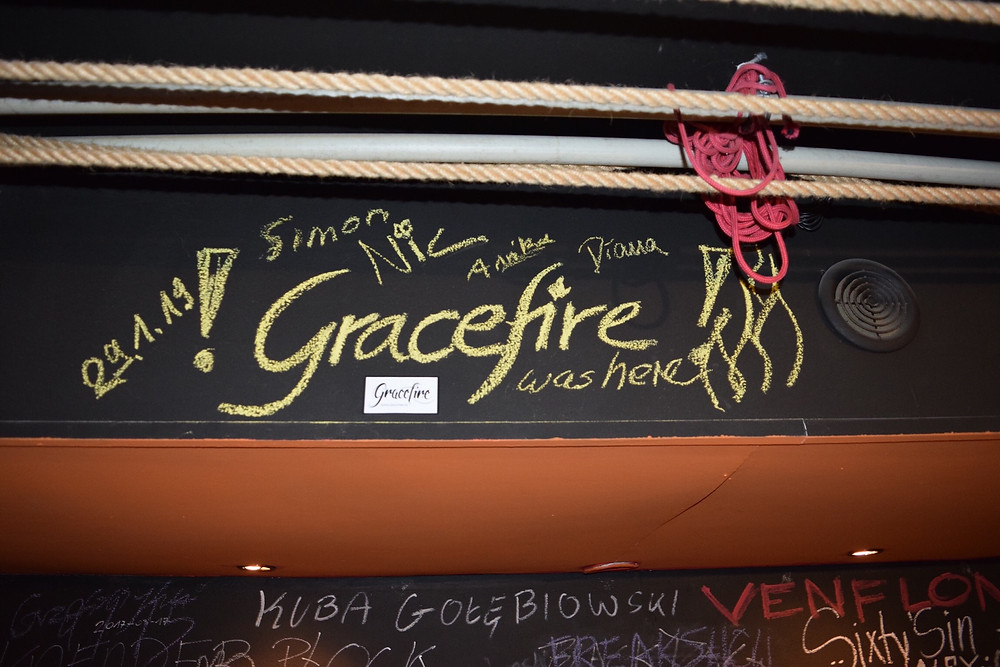 Simon
Nic
Annika
Diana
29.1.19
!
Gracefire
!
was here
Gracefire
KUBA GOŁĘBIOWSKI
VENFLON
2017-
Sixty Sin
BLOCK